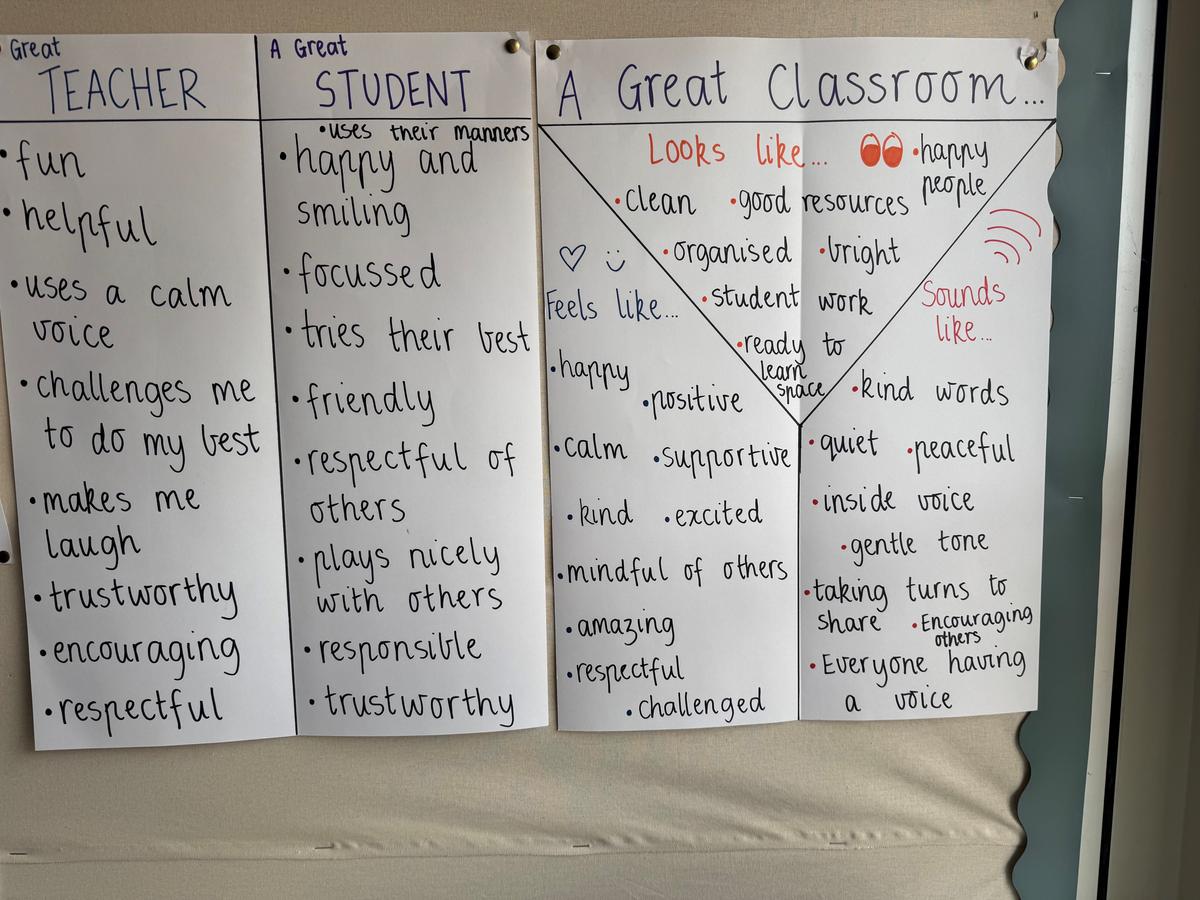 Great
TEACHER
• fun
• helpful
• uses a calm
voice
• challenges me
to do my best
• makes me
laugh
• trustworthy
• encouraging
• respectful
A Great
STUDENT
• uses their manners
• happy and
smiling
• focussed
• tries their best
• friendly
• respectful of
others
• plays nicely
with others
• responsible
• trustworthy
A Great Classroom...
Looks like...
• happy
people
• clean • good resources
• organised • bright
• student work
• ready to
learn
space
Feels like...
• happy
• positive
• calm • supportive
• kind • excited
• mindful of others
• amazing
• respectful
• challenged
Sounds
like...
• kind words
• quiet • peaceful
• inside voice
• gentle tone
• taking turns to
share • Encouraging
others
• Everyone having
a voice